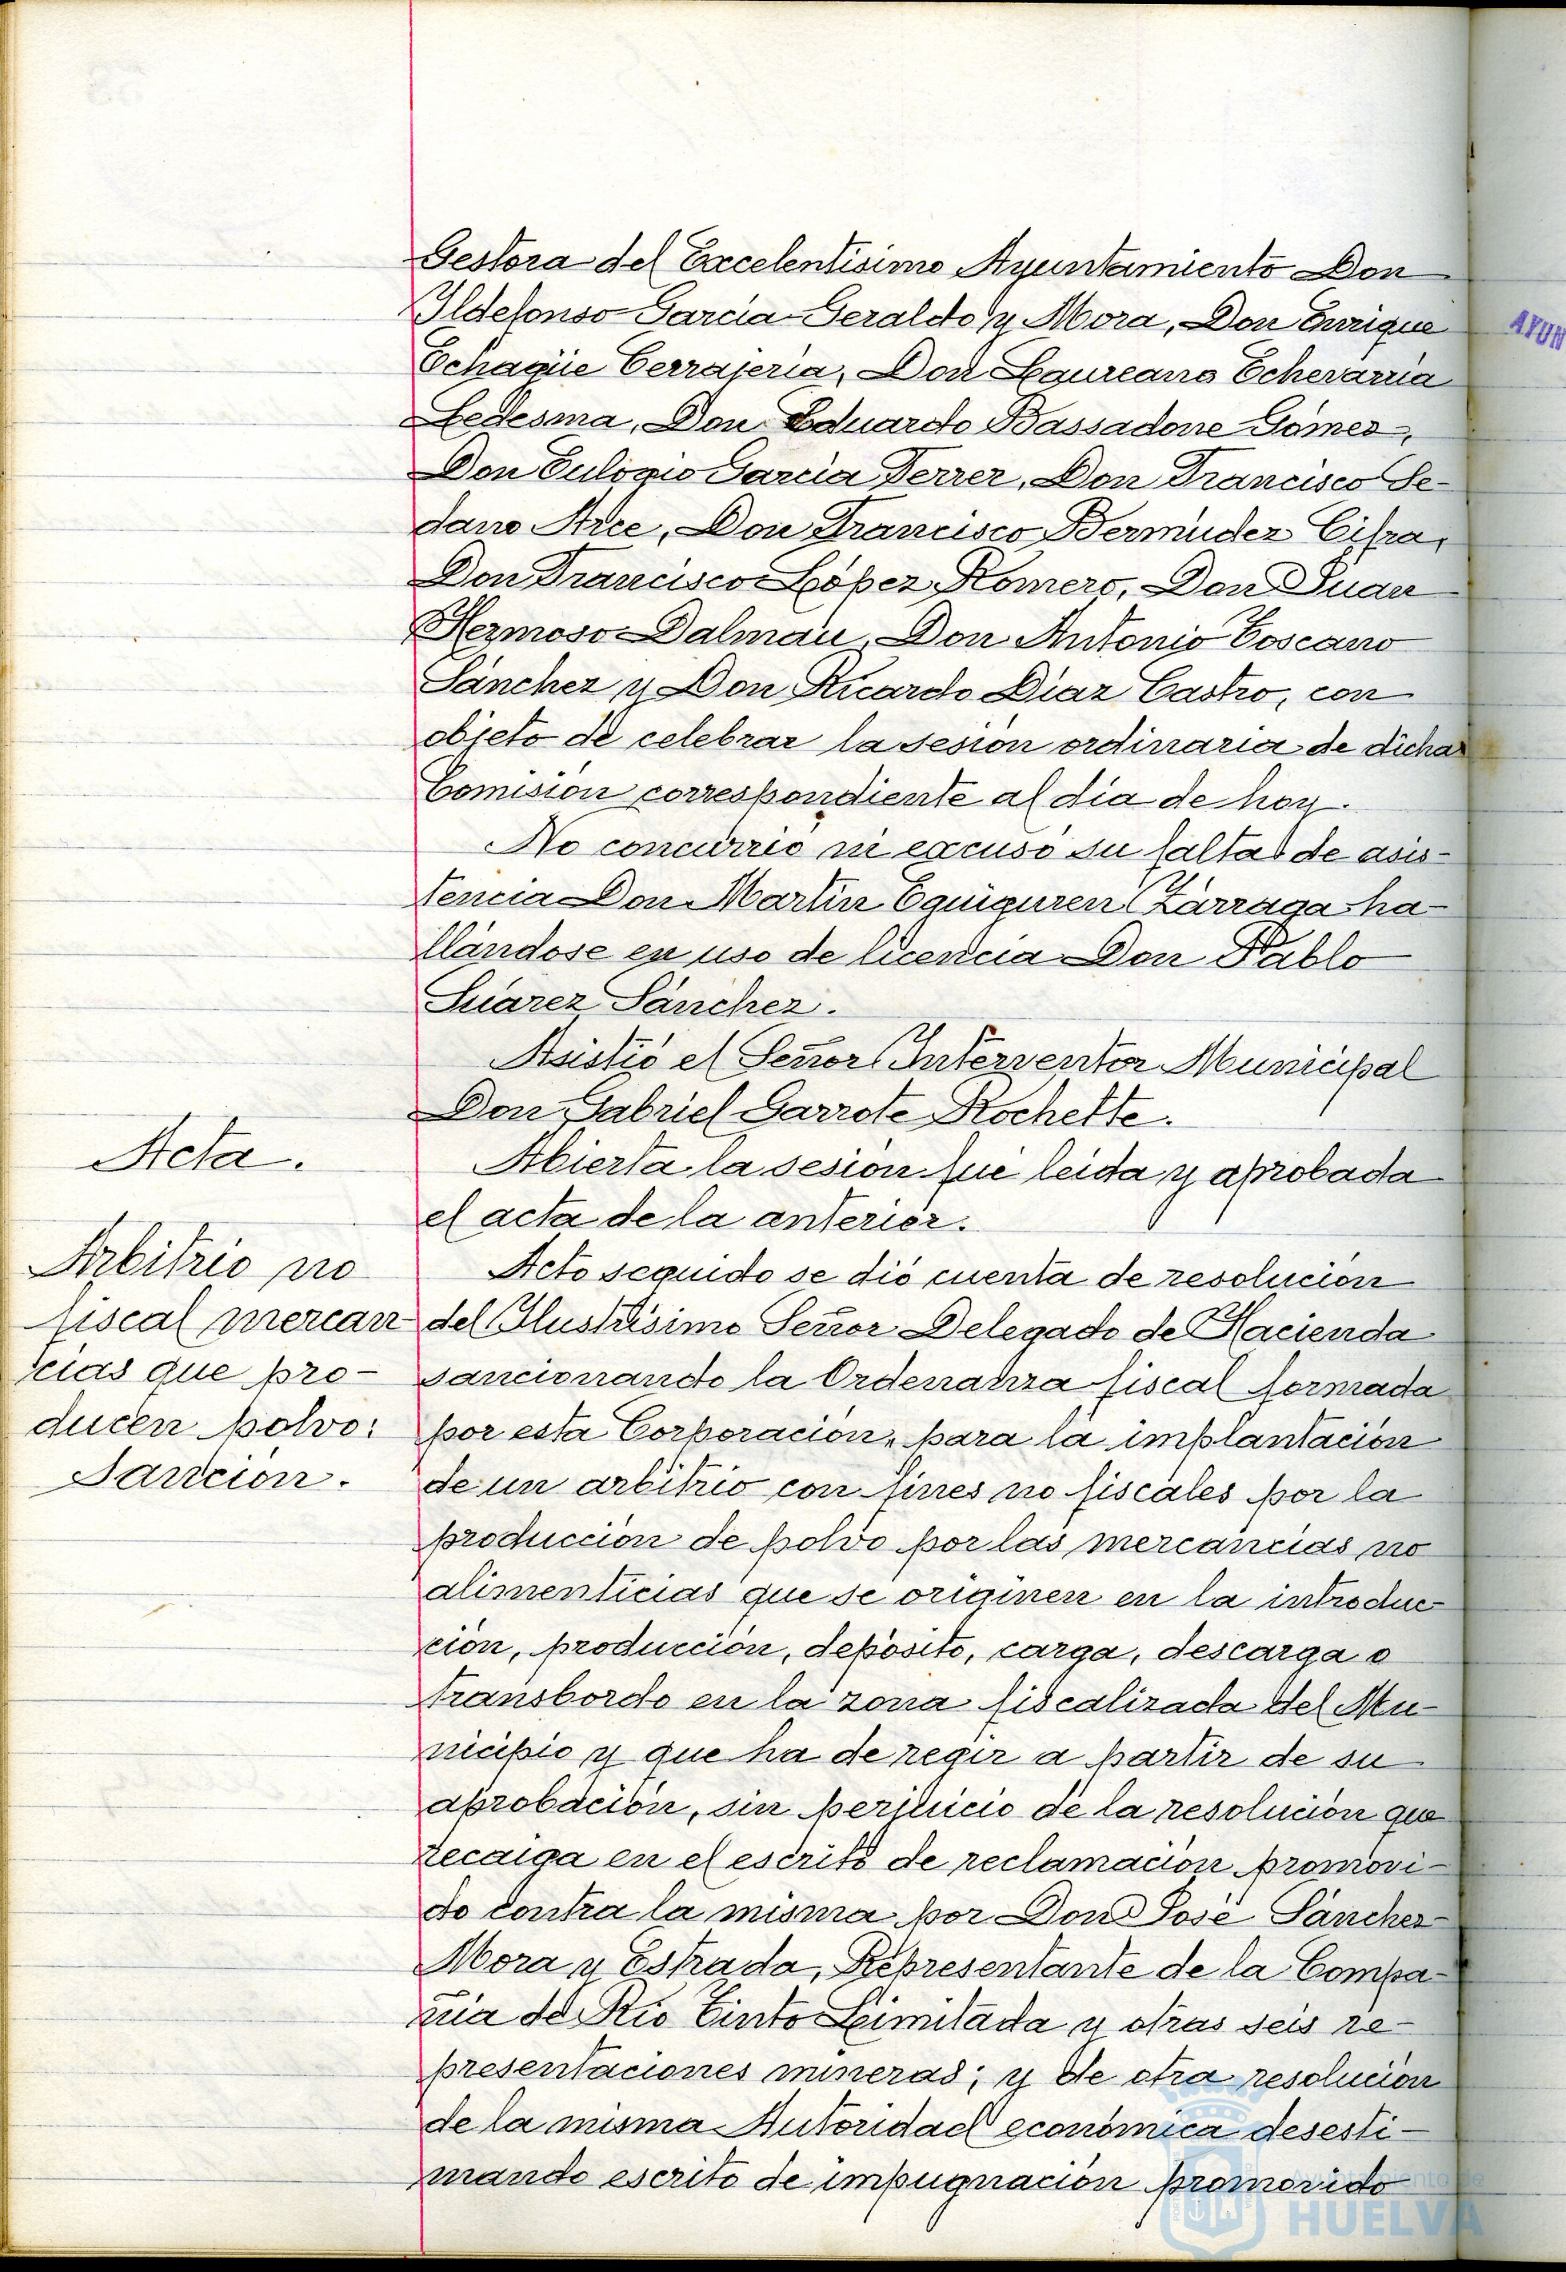 Gestora del Excelentísimo Ayuntamiento Don
Ildefonso García-Geraldo y Mora, Don Enrique
Echagüe Cerrajería, Don Laureano Echevarria
Ledesma, Don Eduardo Bassadone Gómez,
Don Eulogio García Ferrer, Don Francisco Se-
dano Arce, Don Francisco Bermúdez Cifra,
Don Francisco López Romero, Don Juan
Hermoso Dalmau, Don Antonio Toscano
Sánchez y Don Ricardo Díaz Castro, con
objeto de celebrar la sesión ordinaria de dicha
Comisión correspondiente al día de hoy.
No concurrió ni excusó su falta de asis-
tencia Don Martín Eguiguren Zárraga ha-
llándose en uso de licencia Don Pablo
Suárez Sánchez.
Asistió el Señor Interventor Municipal
Don Gabriel Garrote Rochette.
Acta.
Abierta la sesión fué leida y aprobada
el acta de la anterior.
Arbitrio no
fiscal mercan
cias que pro-
ducen polvo:
Sanción.
Acto seguido se dió cuenta de resolución
del Ilustrísimo Señor Delegado de Hacienda
sancionando la Ordenanza fiscal formada
por esta Corporación, para la implantación
de un arbitrio con fines no fiscales por la
producción de polvo por las mercancías no
alimenticias que se originen en la introduc-
ción, producción, depósito, carga, descarga o
transbordo en la zona fiscalizada del Mu-
nicipio y que ha de regir a partir de su
aprobación, sin perjuicio de la resolución que
recaiga en el escrito de reclamación promovi-
do contra la misma por Don José Sánchez
Mora y Estrada, Representante de la Compa-
ñía de Rio Tinto Limitada y otras seis re-
presentaciones mineras; y de otra resolución
de la misma Autoridad económica desesti-
mando escrito de impugnación promovido
AYUN
Ayuntamiento de
HUELVA